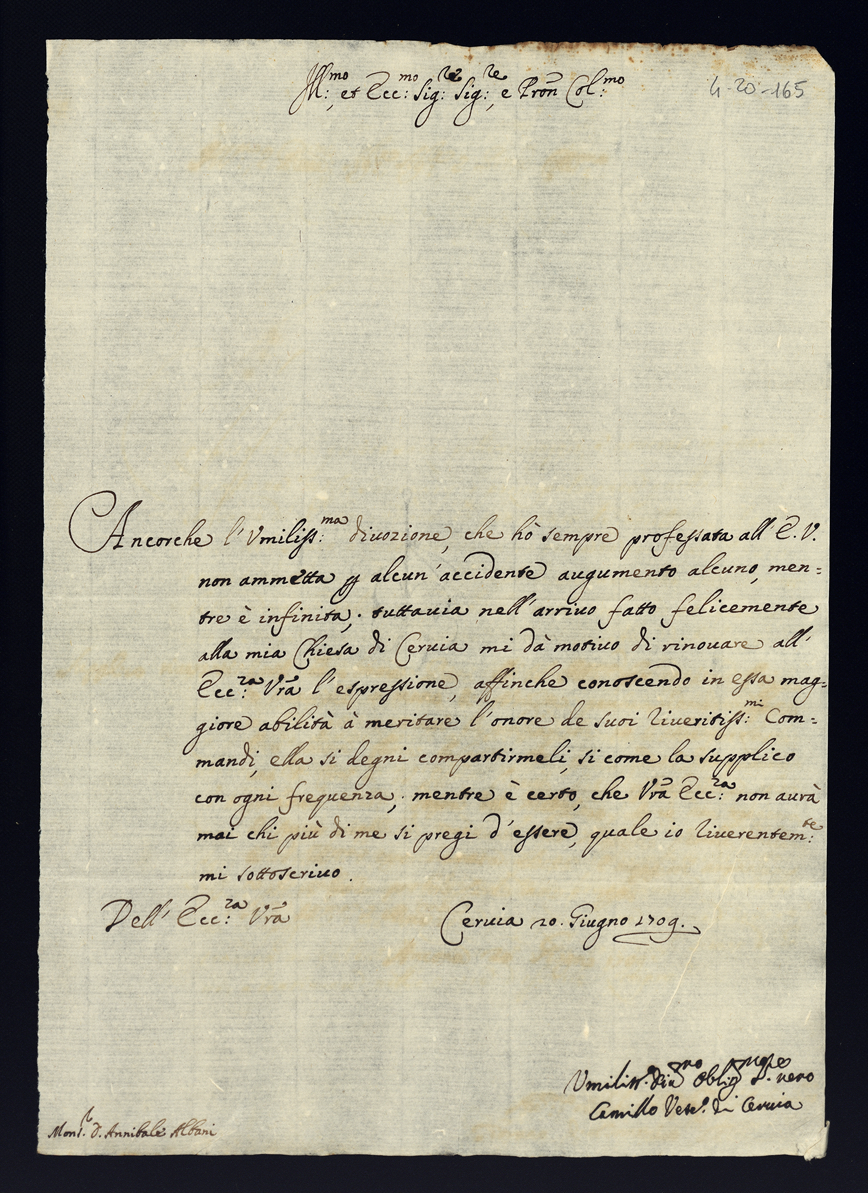 Ill:mo, et Ecc:mo Sig:re Sig:re, e Pron Col:mo
4-20-165
Ancorche l'Vmiliss:ma diuozione, che hò sempre professata all' E. V.
non ammetta p alcun' accidente augumento alcuno, men=
tre è infinita; tuttauia nell' arriuo fatto felicemente
alla mia Chiesa di Ceruia mi dà motiuo di rinouare all'
Ecc:za Vrã l'espressione, affinche conoscendo in essa mag=
giore abilità à meritare l'onore de suoi riueritiss:mi Com=
mandi, ella si degni compartirmeli, si come la supplico
con ogni frequenza; mentre è certo, che Vrã Ecc:za non aurà
mai chi più di me si pregi d'essere, quale io riuerentem:te
mi sottoscriuo.
Dell' Ecc:za Vrã
Ceruia 20. Giugno 1709.
Vmiliss.o diu.mo oblig.mo vero
Camillo Vesc.o di Ceruia
Mons.r D. Annibale Albani